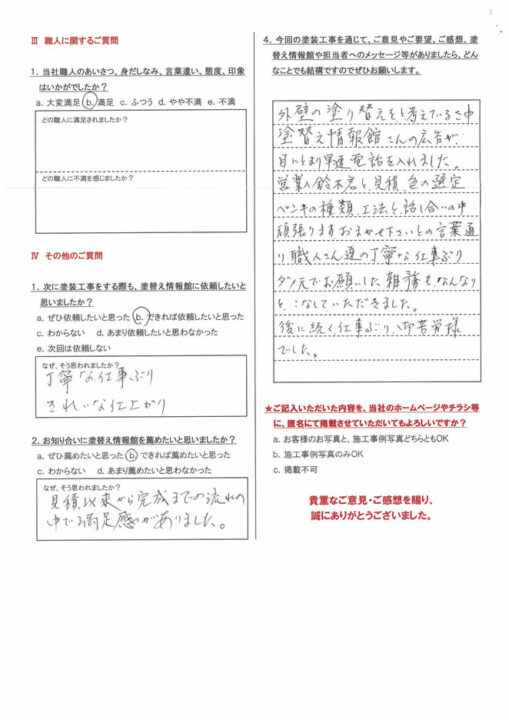 Ⅲ 職人に関するご質問
1. 当社職人のあいさつ、身だしなみ、言葉遣い、態度、印象
はいかがでしたか？
a. 大変満足 b. 満足 c. ふつう d. やや不満 e. 不満
どの職人に満足されましたか？
どの職人に不満を感じましたか？
Ⅳ その他のご質問
1. 次に塗装工事をする際も、塗替え情報館に依頼したいと
思いましたか？
a. ぜひ依頼したいと思った b. できれば依頼したいと思った
c. わからない d. あまり依頼したいと思わなかった
e. 次回は依頼しない
なぜ、そう思われましたか？
丁寧な仕事ぶり
きれいな仕上がり
2. お知り合いに塗替え情報館を薦めたいと思いましたか？
a. ぜひ薦めたいと思った b. できれば薦めたいと思った
c. わからない d. あまり薦めたいと思わなかった
なぜ、そう思われましたか？
見積以来から完成までの流れの
中で満足感がありました。
4. 今回の塗装工事を通じて、ご意見やご要望、ご感想、塗
替え情報館や担当者へのメッセージ等がありましたら、どん
なことでも結構ですのでぜひお願いします。
外壁の塗り替えをと考えているさ中
塗替え情報館さんの広告が、
目にとまり早速電話を入れました。
営業の鈴木君と見積、色の選定
ペンキの種類、工法と、話し合いの中
頑張りますおまかせ下さいとの言葉通
り職人さん達の丁寧な仕事ぶり
ダメ元でお願いした雑務もなんなり
と、こなしていただきました。
後に続く仕事ぶり、ご苦労様
でした。
★ご記入いただいた内容を、当社のホームページやチラシ等
に、匿名にて掲載させていただいてもよろしいですか？
a. お客様のお写真と、施工事例写真どちらともOK
b. 施工事例写真のみOK
c. 掲載不可
貴重なご意見・ご感想を賜り、
誠にありがとうございました。